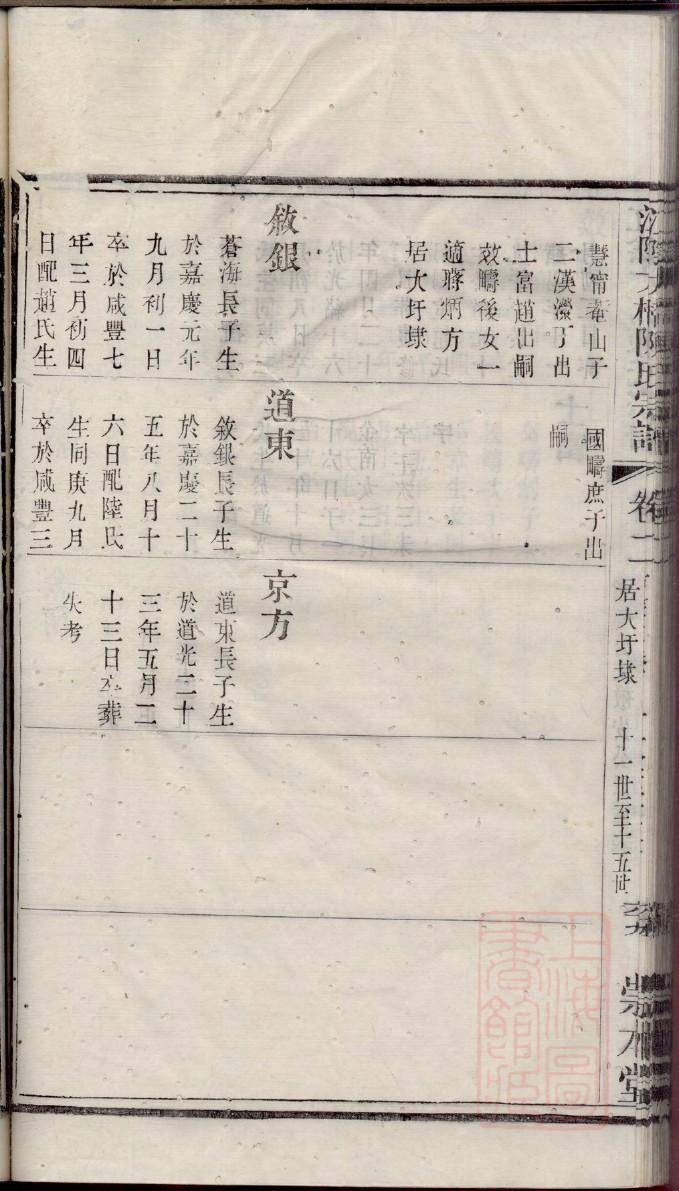 慧甯菴山子
二漢瀠丁出
士富趙出嗣
效疇後女一
適蔣炳方
居大圩埭
敘銀
蒼海長子生
於嘉慶元年
九月初一日
卒於咸豐七
年三月初四
日配趙氏生
國疇庶子出
嗣
道東
敘銀長子生
於嘉慶二十
五年八月十
六日配陸氏
生同庚九月
卒於咸豐三
京方
道東長子生
於道光二十
三年五月二
十三日卒葬
失考
江陰 陳氏宗譜
卷二
居大圩埭
十一世至十五世
崇本堂
上海圖書館藏